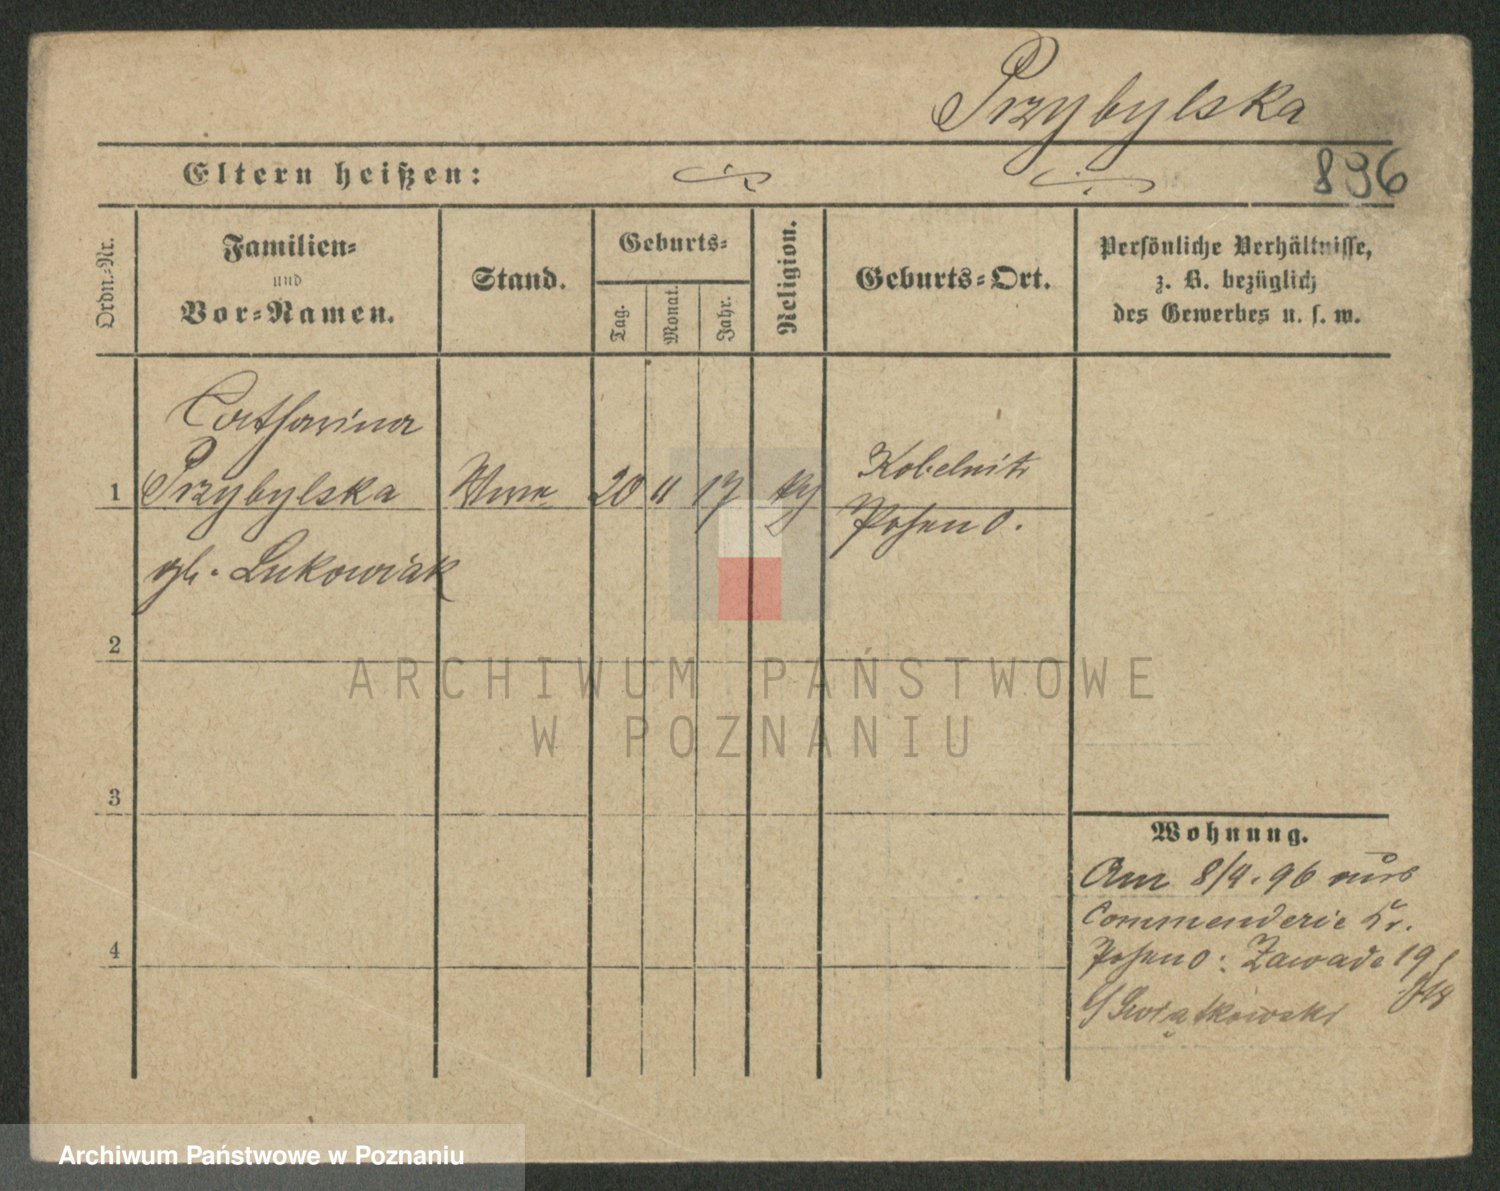 Przybylska
Eltern heißen:
896
Ordn.-Nr.
Familien-
und
Vor-Namen.
Stand.
Geburts-
Tag.
Monat.
Jahr.
Religion.
Geburts-Ort.
Persönliche Verhältnisse,
z. B. bezüglich
des Gewerbes u. s. w.
Catharina
1 Przybylska Wwe 20 11 17 Kobelnitz
Posen O.
gb. Lukowiak
2
3
4
Wohnung.
Am 8/4. 96 aus
Commenderie Kr.
Posen O: Zawade 19
Swiątkowski
ARCHIWUM PAŃSTWOWE
W POZNANIU
Archiwum Państwowe w Poznaniu